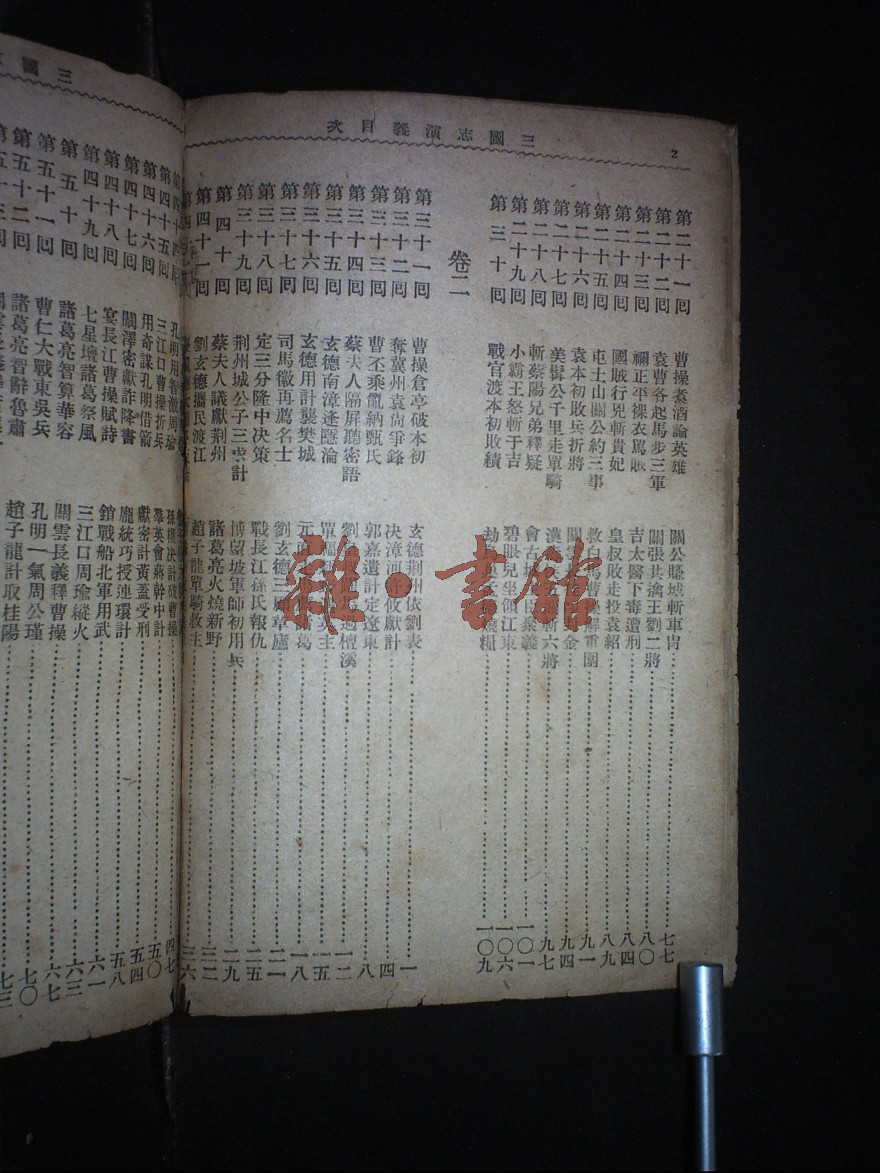 三國志演義目次
2
第二十一回 曹操煮酒論英雄 關公賺城斬車冑 七七
第二十二回 袁曹各起馬步三軍 關張共擒王劉二將 八〇
第二十三回 禰正平裸衣罵賊 吉太醫下毒遭刑 八四
第二十四回 國賊行兇斬貴妃 皇叔敗走投袁紹 八九
第二十五回 屯土山關公約三事 救白馬曹操解重圍 九一
第二十六回 袁本初敗兵折將 關 金 九四
第二十七回 美髯公千里走單騎 漢 斬六將 九七
第二十八回 斬蔡陽兄弟釋疑 會古城 臣聚義 一〇一
第二十九回 小霸王怒斬于吉 碧眼兒坐領江東 一〇六
第三十回 戰官渡本初敗績 劫 燒糧 一〇九
卷二
第三十一回 曹操倉亭破本初 玄德荆州依劉表 一
第三十二回 奪冀州袁尙爭鋒 决漳河許攸獻計 四
第三十三回 曹丕乘亂納甄氏 郭嘉遺計定遼東 八
第三十四回 蔡夫人隔屏聽密語 劉 過檀溪 一二
第三十五回 玄德南漳逢隱淪 單福 英主 一五
第三十六回 玄德用計襲樊城 元 諸葛 一八
第三十七回 司馬徽再薦名士 劉玄德三顧草廬 二一
第三十八回 定三分隆中决策 戰長江孫氏報仇 二五
第三十九回 荆州城公子三求計 博望坡軍師初用兵 二九
第四十回 蔡夫人議獻荆州 諸葛亮火燒新野 三二
第四十一回 劉玄德攜民渡江 趙子龍單騎救主 三六
三國
第四十四回 孔明用智激周瑜 孫權决計破曹操 四七
第四十五回 三江口曹操折兵 羣英會蔣幹中計 五〇
第四十六回 用奇謀孔明借箭 獻密計黃蓋受刑 五四
第四十七回 闞澤密獻詐降書 龐統巧授連環計 五八
第四十八回 宴長江曹操賦詩 鎖戰船北軍用武 六一
第四十九回 七星壇諸葛祭風 三江口周瑜縱火 六三
第五十回 諸葛亮智算華容 關雲長義釋曹操 六七
第五十一回 曹仁大戰東吳兵 孔明一氣周公瑾 七〇
第五十二回 諸葛亮智辭魯肅 趙子龍計取桂陽 七三
雜·書館